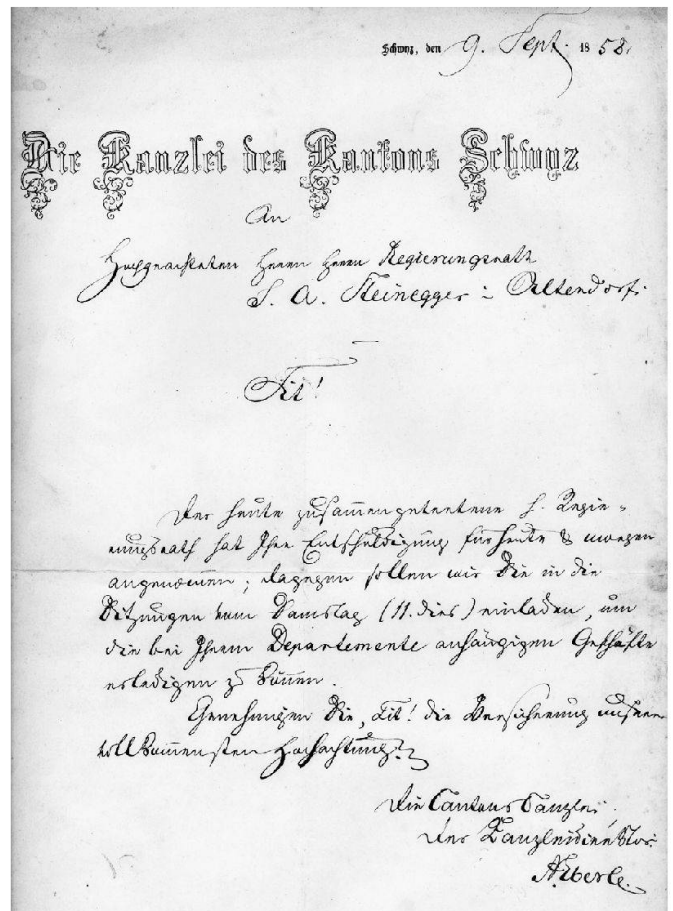 Schwyz, den 9. Sept. 1858.
Die Kanzlei des Kantons Schwyz
An
Hochgeachteten Herrn Herrn Regierungsrath
S. A. Steinegger in Altendorf.
Tit!
Der heute zusammengetretene h. Regie-
rungsrath hat Ihre Entschuldigung für heute & morgen
angenommen; dagegen sollen wir Sie in die
Sitzungen vom Samstag (11. dies) einladen, um
die bei Ihrem Departemente anhängigen Geschäfte
erledigen zu können.
Genehmigen Sie, Tit! die Versicherung unserer
vollkommensten Hochachtung.
Die Cantonskanzlei.
Der Kanzleidirektor:
Eberle.